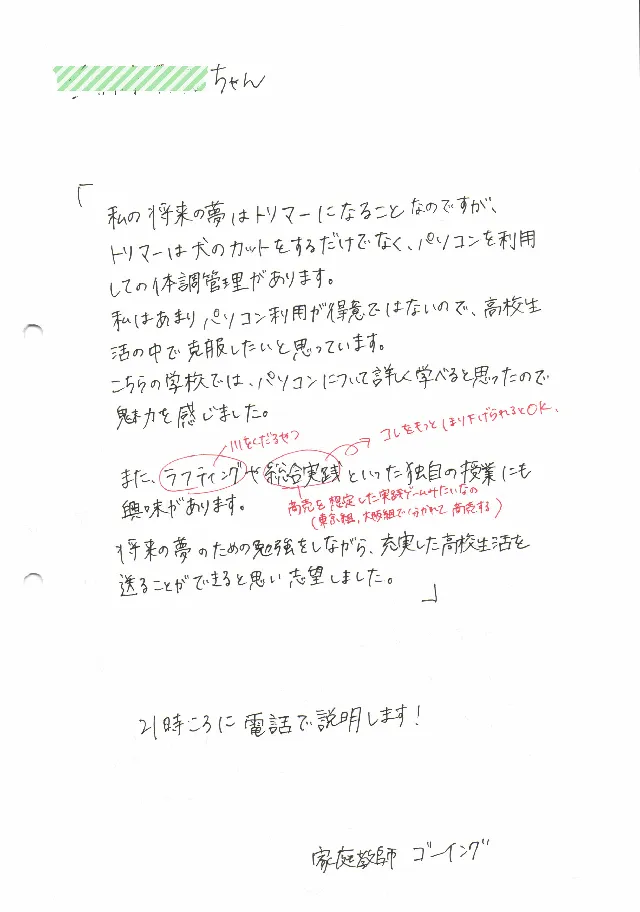 ちゃん
「
私の将来の夢はトリマーになることなのですが、
トリマーは犬のカットをするだけでなく、パソコンを利用
しての体調管理があります。
私はあまりパソコン利用が得意ではないので、高校生
活の中で克服したいと思っています。
こちらの学校では、パソコンについて詳しく学べると思ったので
魅力を感じました。
川をくだるやつ
コレをもっとほり下げられるとOK.
また、ラフティングや総合実践といった独自の授業にも
興味があります。
商売を想定した実践ゲームみたいなの
(東京組、大阪組で分かれて商売する)
将来の夢のための勉強をしながら、充実した高校生活を
送ることができると思い志望しました。
」
21時ころに電話で説明します!
家庭教師 ゴーイング